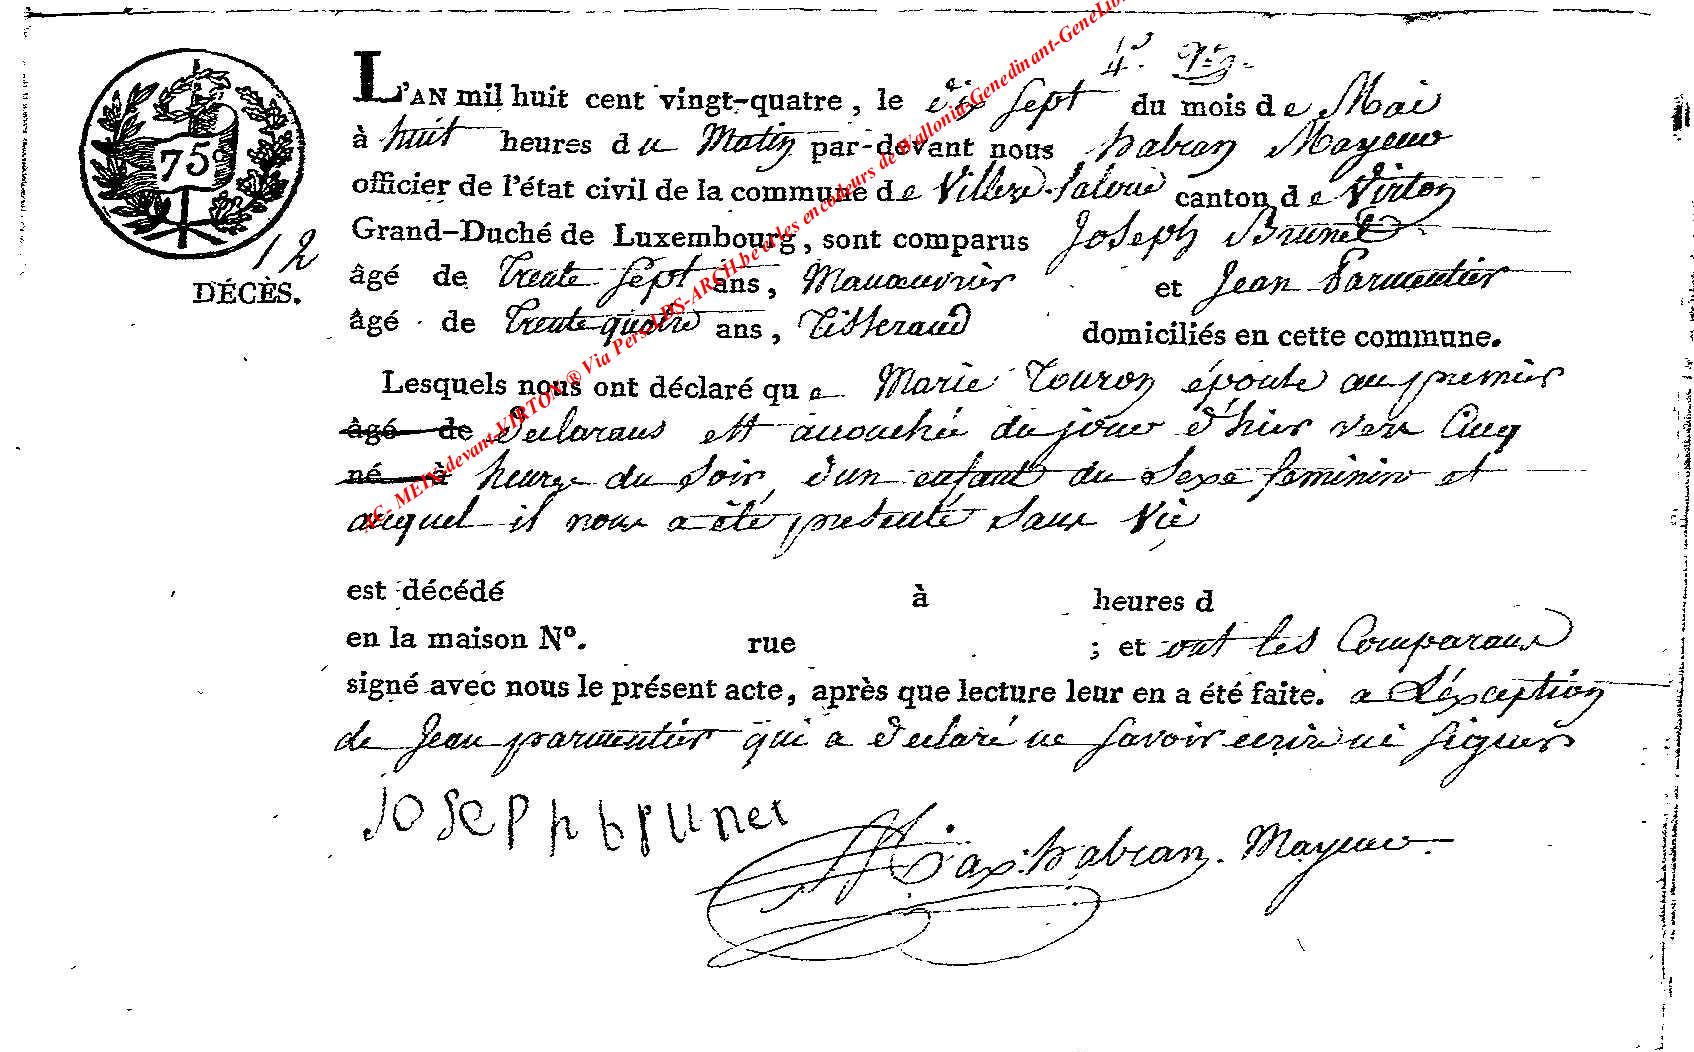 L'AN mil huit cent vingt-quatre, le dix Sept du mois de Mai
à huit heures du Matin par-devant nous habran Mayeur
officier de l'état civil de la commune de Villers-Laloue canton de Virton
Grand-Duché de Luxembourg, sont comparus Joseph Brunet
75
12
DÉCÈS.
âgé de trente Sept ans, Manoeuvrier et Jean Parmentier
âgé de trente quatre ans, Tisserand domiciliés en cette commune.
Lesquels nous ont déclaré que Marie Touron épouse au premier
âgé de Declarans est accouchée du jour d'hier vers Cinq
né à heures du Soir, d'un enfant du Sexe feminin et
auquel il nous a été presenté Sans Vie
est décédé à heures d
en la maison Nº. rue ; et ont les Comparans
signé avec nous le présent acte, après que lecture leur en a été faite. a L'éxception
de Jean parmentier qui a declaré ne Savoir ecrire ni Signer
joseph brunet
habran. Mayeur.
AC- MEIX-devant-VIRTON ® Via Pers-LDS-ARCH.be et les encodeurs de Wallonia-Genedinant-GeneLib